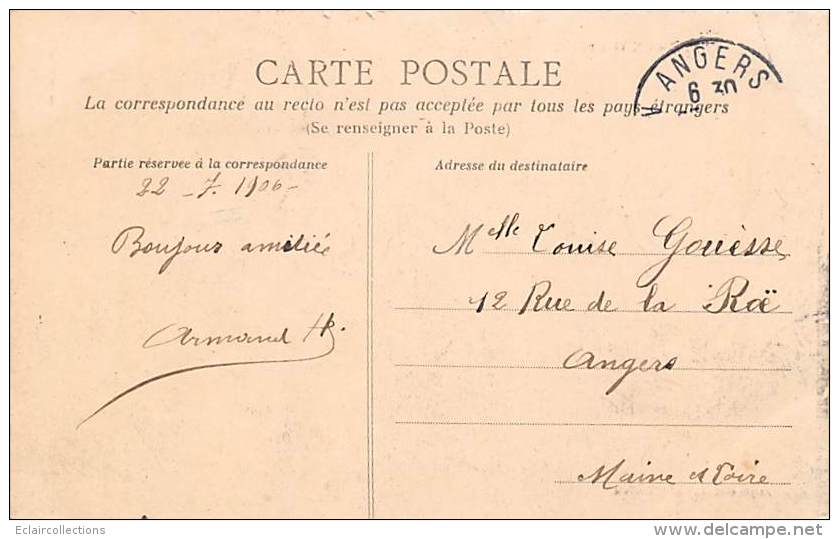 CARTE POSTALE
ANGERS
6 30
La correspondance au recto n'est pas acceptée par tous les pays étrangers
(Se renseigner à la Poste)
Partie réservée à la correspondance
22 - 7. 1906 -
Bonjour amitiés
Armand H.
Adresse du destinataire
Melle Louise Gouësse
12 Rue de la Roë
Angers
Maine et Loire
Eclaircollections
www.delcampe.net